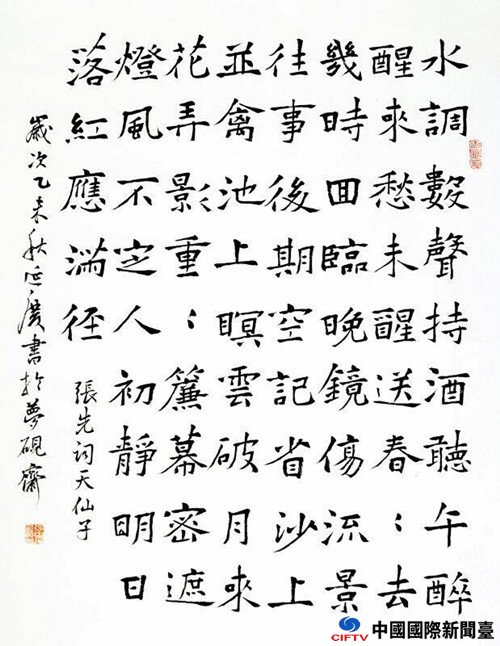 水調數聲持酒聽午醉
醒來愁未醒送春：去
幾時回臨晚鏡傷流景
往事後期空記省沙上
並禽池上瞑雲破月來
花弄影重：簾幕密遮
燈風不定人初靜明日
落紅應滿徑
張先詞天仙子
歲次乙未秋延廣書於夢硯齋
CIFTV 中國國際新聞臺